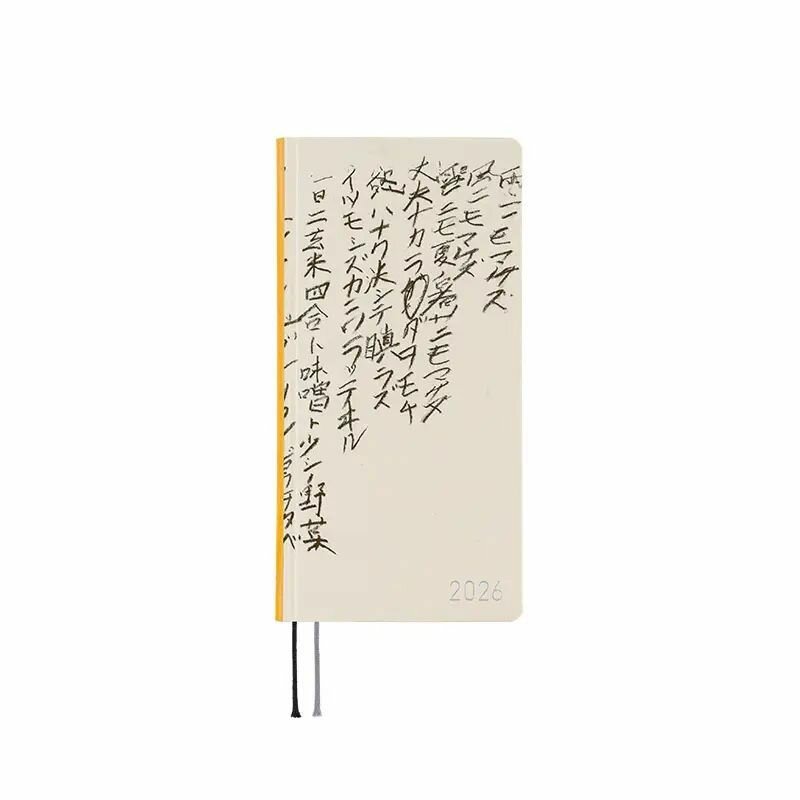 雨ニモマケズ
風ニモマケズ
雪ニモ夏ノ暑サニモマケヌ
丈夫ナカラダヲモチ
慾ハナク
決シテ瞋ラズ
イツモシヅカニワラッテヰル
一日ニ玄米四合ト
味噌ト少シノ野菜
タベ
2026